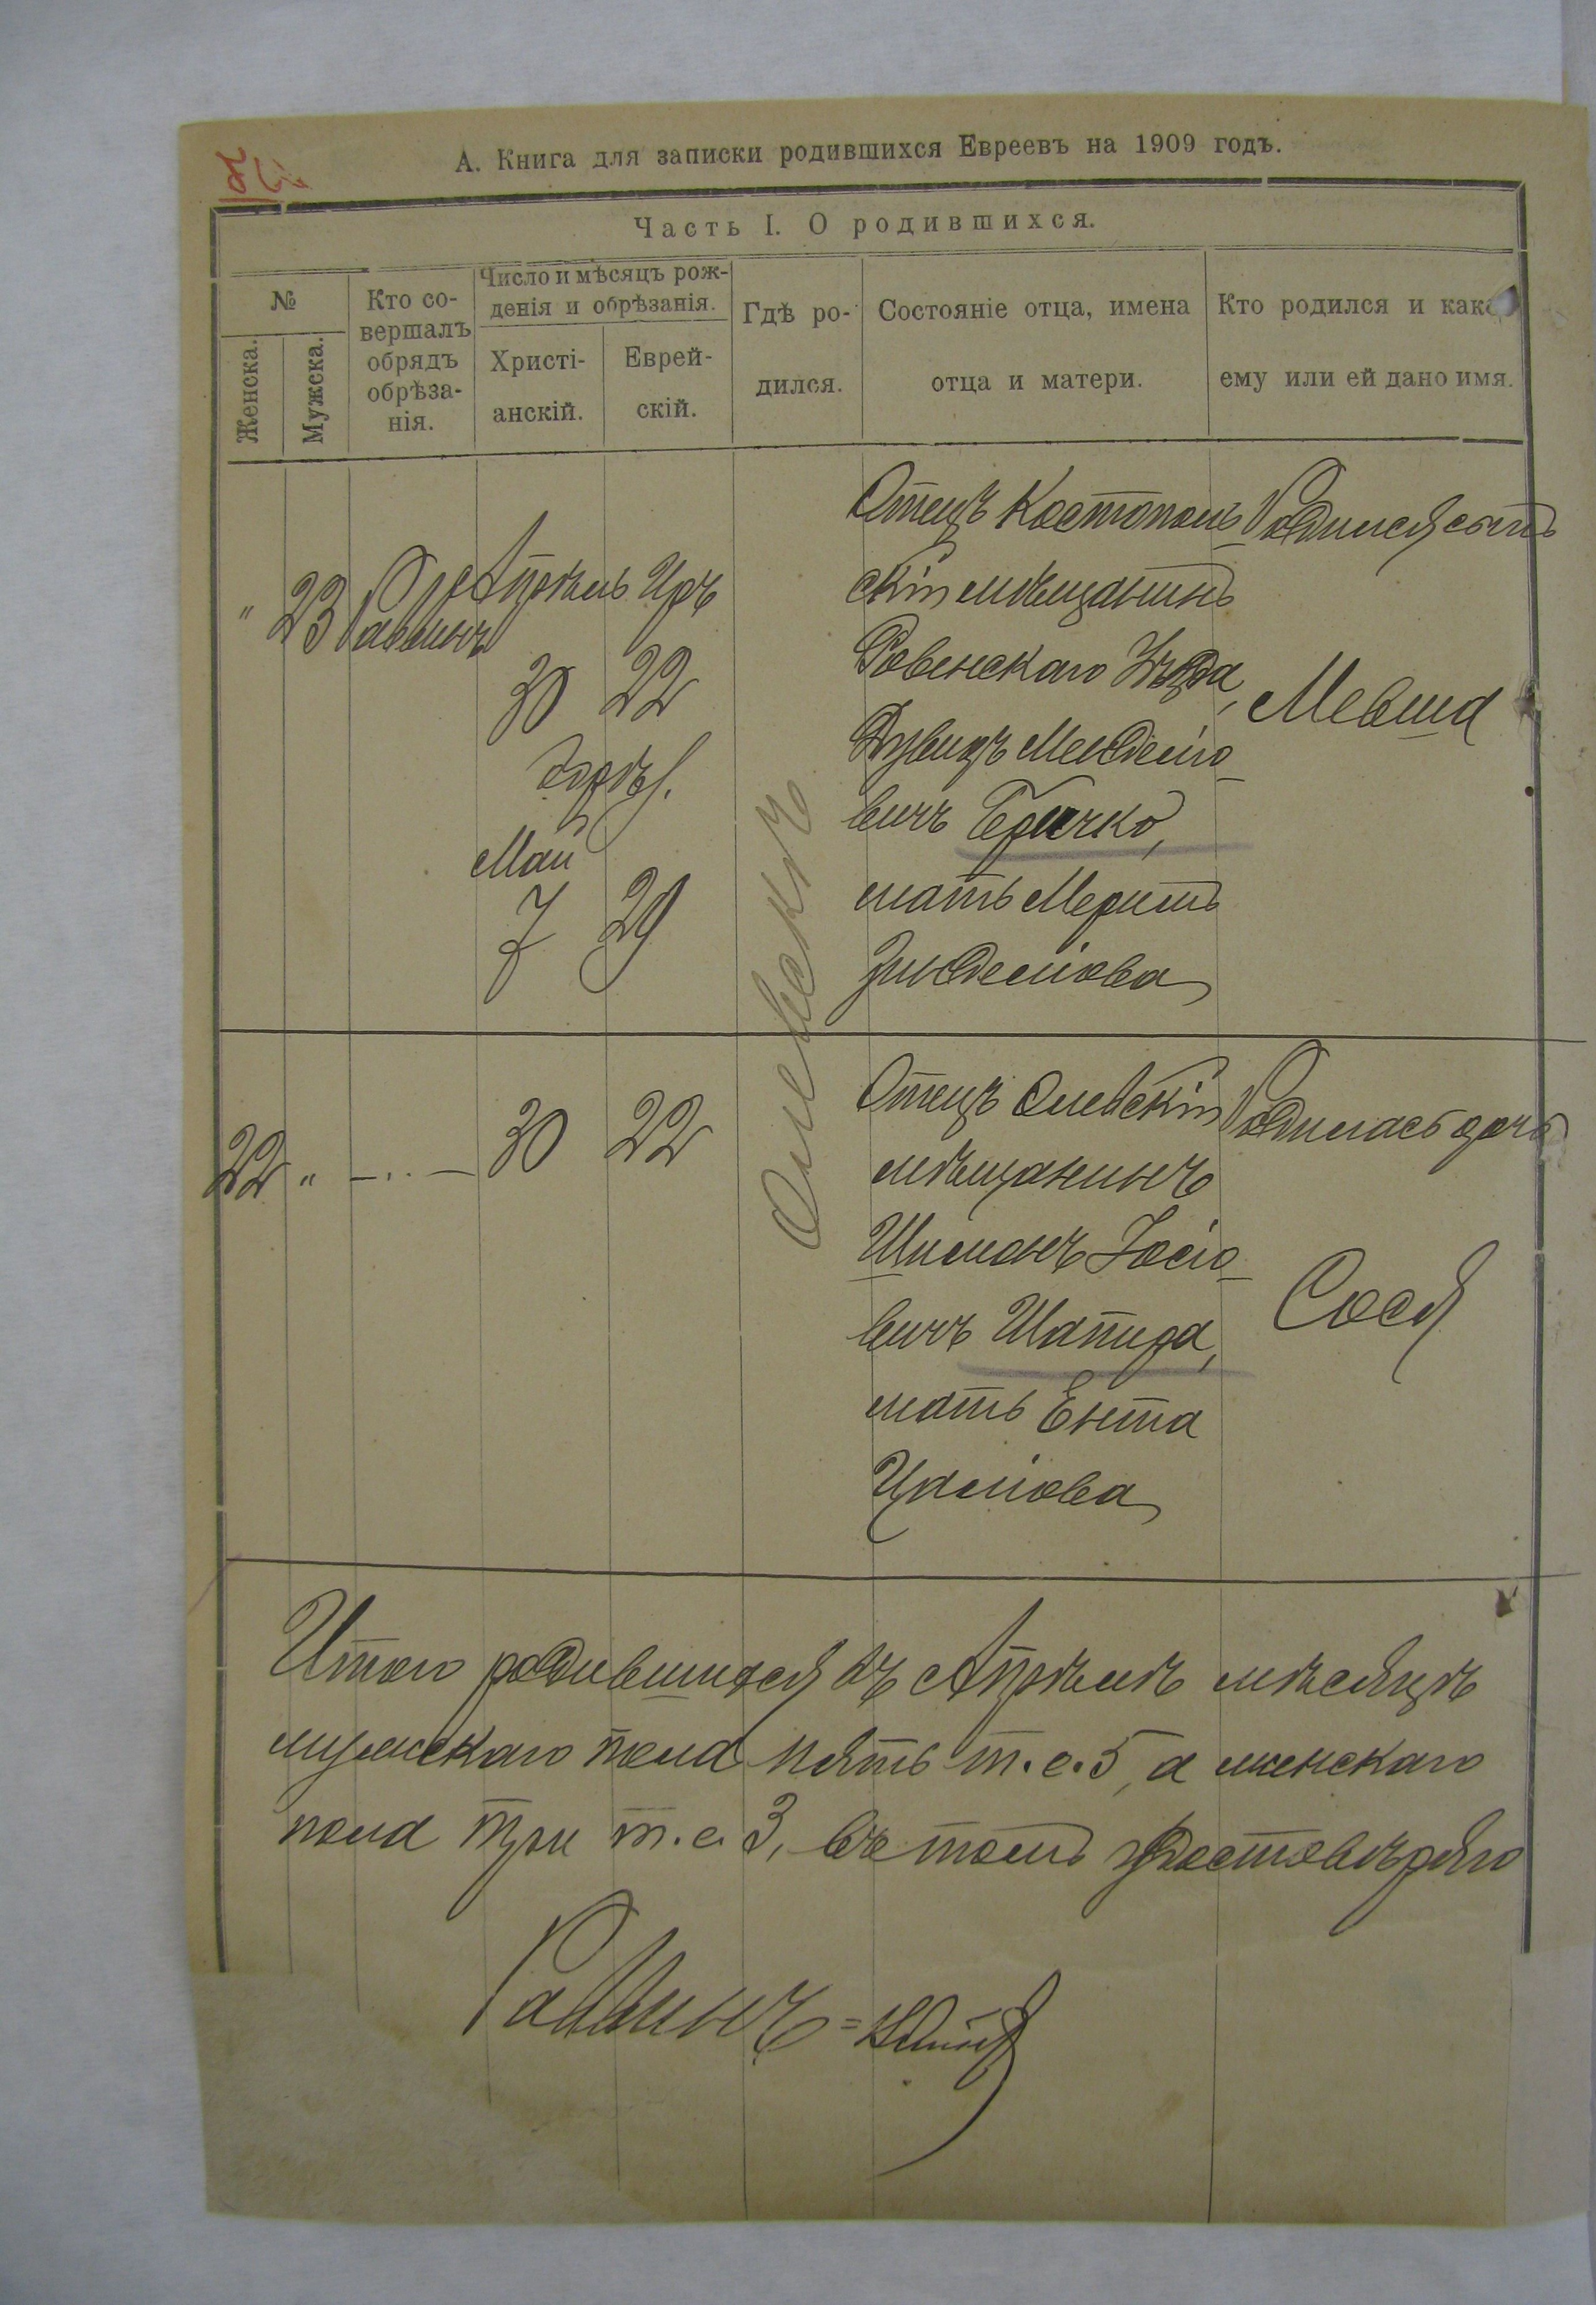 А. Книга для записки родившихся Евреевъ на 1909 годъ.
Часть I. О родившихся.
№
Женска.
Мужска.
Кто со-
вершалъ
обрядъ
обрѣза-
нія.
Число и мѣсяцъ рож-
денія и обрѣзанія.
Христі-
анскій.
Еврей-
скій.
Гдѣ ро-
дился.
Состояніе отца, имена
отца и матери.
Кто родился и како
ему или ей дано имя.
" 23
Раввинъ
Апрѣль Иръ
30 22
обрѣз.
Май
7 29
Олевскѣ
Отецъ Костополь-
скій мѣщанинъ
Ровенскаго Уѣзда,
Мендело-
вичъ Бричко,
мать Меримъ
Зынделіова
Родился сынъ
Мевша
22 " —..— 30 22
Отецъ Олевскій
мѣщанинъ
Шиманъ Іосіо-
вичъ Шапира,
мать Ента
Цаліова
Родилась дочь
Сося
Итого родившихся въ Апрѣлѣ мѣсяцѣ
мужскаго пола пять т.е. 5, а женскаго
пола три т.е. 3, въ томъ удостовѣряю
Раввинъ =